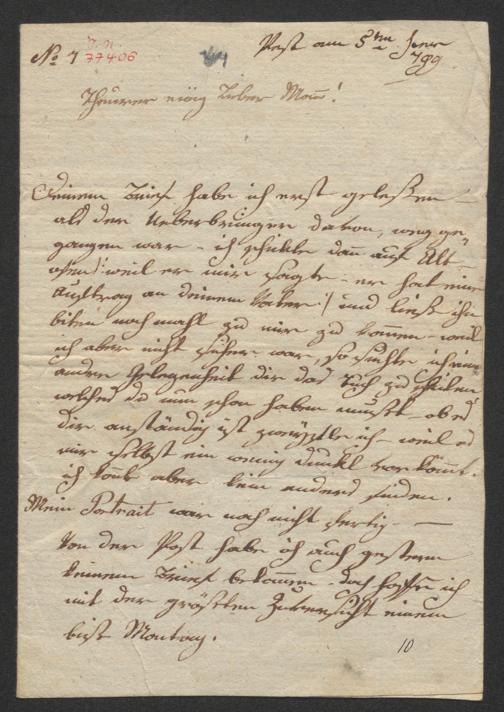 No 7 J. N. 77406
Pest am 5ten Jener
799
Theurer ewig Lieber Mann!
Deinem Brief habe ich erst geleßen
als der Ueberbringer davon, weg ge„
gangen war – ich schickte dann auf Alt
ofen /: weil er mir sagte – er hat eine
Auftrag an deinem Vater :/ und ließ ihn
biten noch mahl zu mir zu komen – weil
ich aber nicht sicher war, so suchte ich eine
andre Gelegenheit dir das Tuch zu schiken
welches du nun schon haben must – ob es
dir anständig ist zweifle ich – weil es
mir selbst ein wenig dunkel vorkömt.
ich konte aber kein anders finden.
Mein Portrait war noch nicht fertig –
Von der Post habe ich auch gestern
keinem Brief bekomen – doch hoffe ich
mit der grösten Zuversicht einem
bist Montag.
10